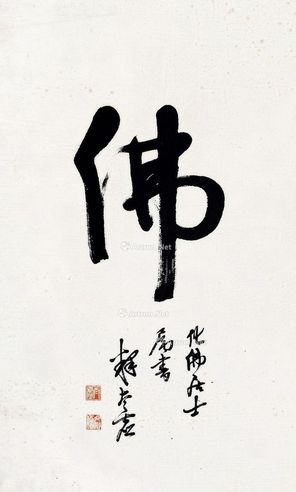 佛
化佛居士
属书
释太虚
Artron.Net
Artron.Net